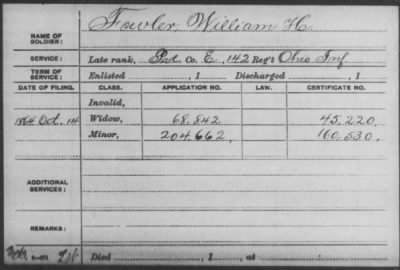 NAME OF SOLDIER: Fowler, William H.
SERVICE: Late rank, Pvt. Co. E, 142 Reg't Ohio Inf.
TERM OF SERVICE: Enlisted , 1 Discharged , 1
DATE OF FILING. CLASS. APPLICATION NO. LAW. CERTIFICATE NO.
Invalid,
1864 Oct. 14 Widow, 68,842 45,220.
Minor, 204,662. 160,530.
ADDITIONAL SERVICES:
REMARKS:
Died , 1 , at